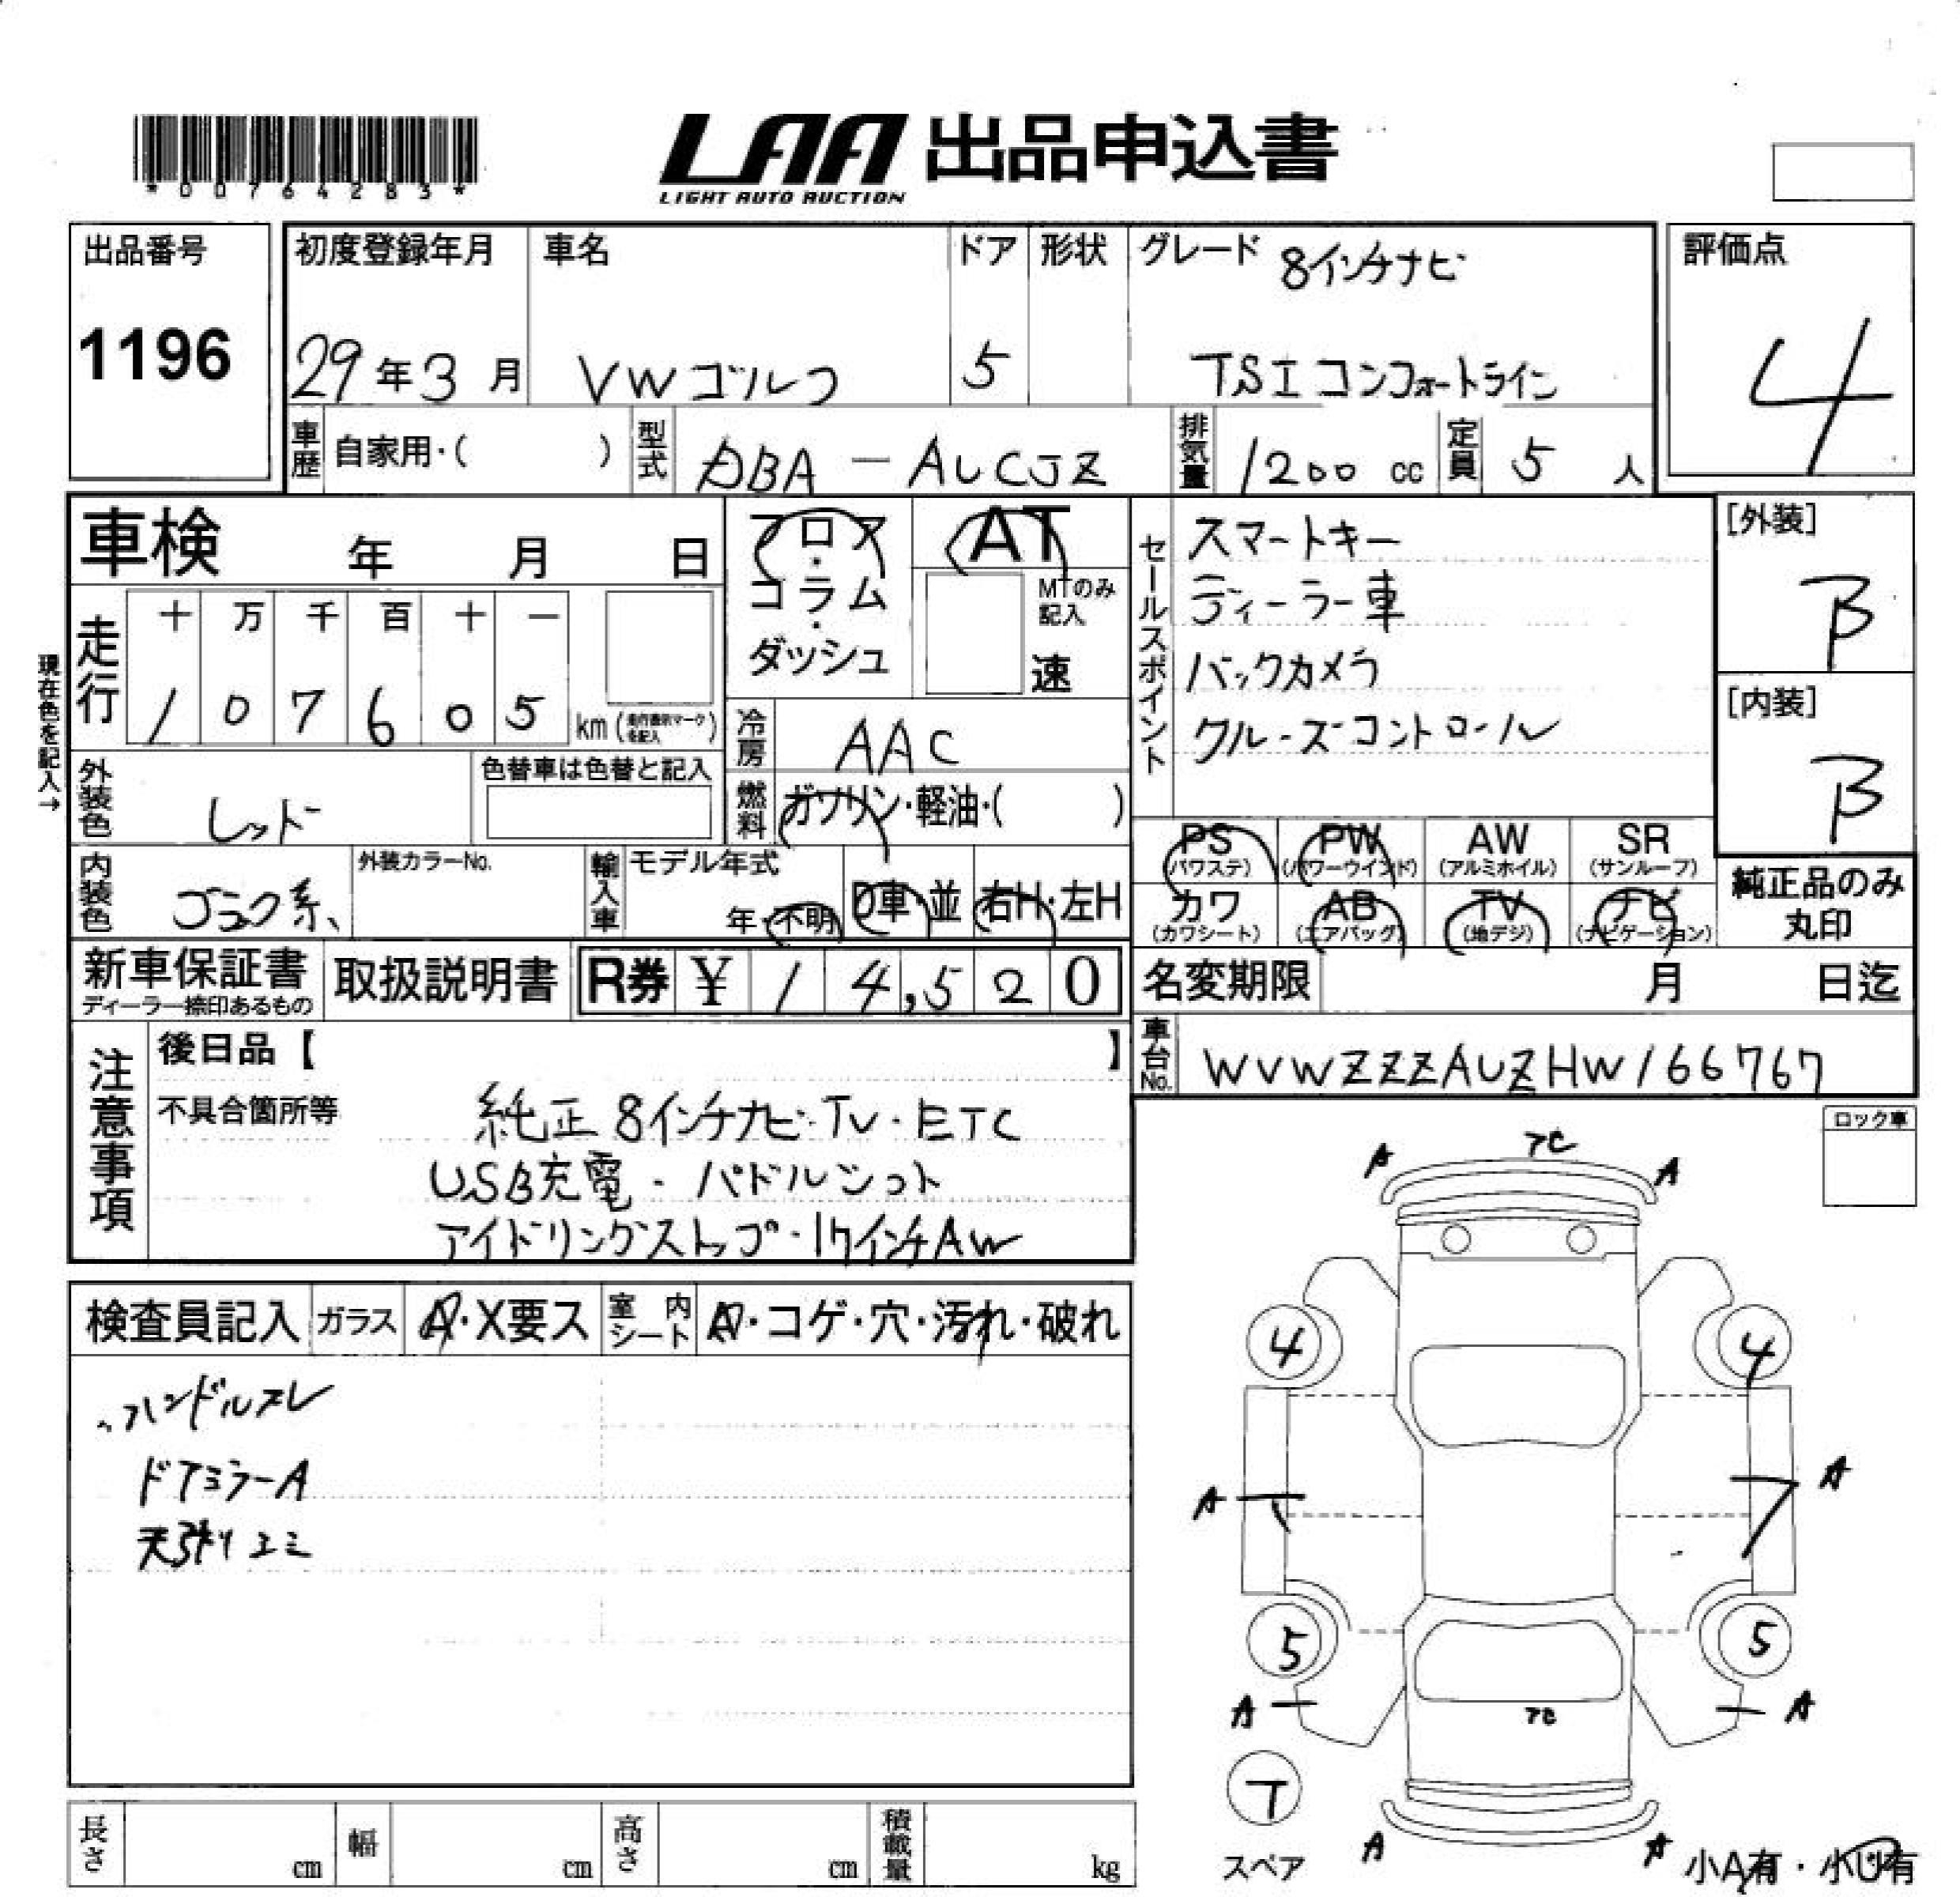 *00764283*
LAA 出品申込書
LIGHT AUTO AUCTION
出品番号
1196
初度登録年月
29年3月
車名
VWゴルフ
ドア
5
形状
グレード 8インチナビ
TSIコンフォートライン
評価点
4
車歴 自家用・( )
型式 DBA-AUCJZ
排気量 1200 cc
定員 5 人
車検 年 月 日
フロア・コラム・ダッシュ
AT
MTのみ記入
速
セールスポイント
スマートキー
ディーラー車
バックカメラ
クルーズコントロール
[外装]
B
[内装]
B
現在色を記入→
走行
十 万 千 百 十 一
1 0 7 6 0 5 km (走行表示マークを記入)
冷房 AAC
燃料 ガソリン・軽油・( )
外装色 レッド
色替車は色替と記入
内装色 ブラック系
外装カラーNo.
輸入車 モデル年式
年・不明
D車・並
右H・左H
PS (パワステ)
PW (パワーウインド)
AW (アルミホイル)
SR (サンルーフ)
カワ (カワシート)
AB (エアバッグ)
TV (地デジ)
ナビ (ナビゲーション)
純正品のみ丸印
新車保証書
ディーラー捺印あるもの
取扱説明書
R券 ¥ 14,520
名変期限 月 日迄
車台No. WVWZZZAUZHW166767
注意事項
後日品【 】
不具合箇所等
純正8インチナビ・TV・ETC
USB充電・パドルシフト
アイドリングストップ・17インチAW
ロック車
検査員記入
ガラス A・X要ス
室内シート A・コゲ・穴・汚れ・破れ
ハンドルスレ
ドアミラーA
天張りエミ
A 7C A
4 4
A A
5 5
A A
7C
T
スペア
A A
小A有・小U有
長さ cm
幅 cm
高さ cm
積載量 kg